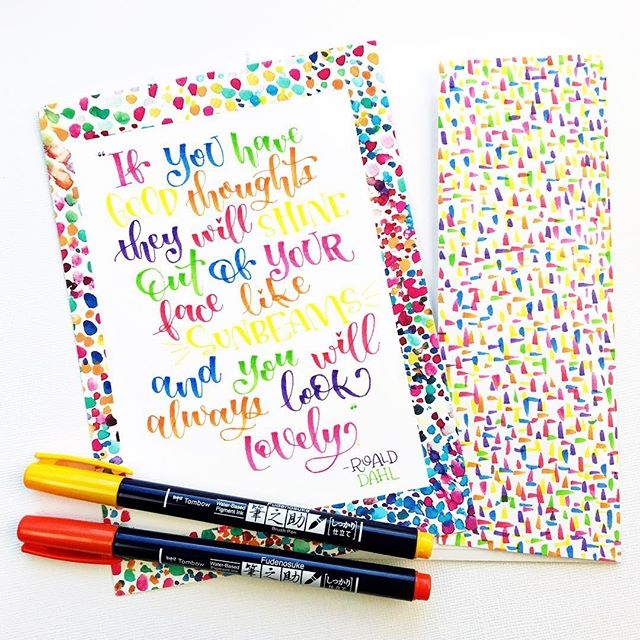 "If you have
GOOD thoughts
they will SHINE
out of YOUR
face like
SUNBEAMS
and you will
always look
lovely."
-ROALD
DAHL
Tombow Water-Based Pigment Ink Fudenosuke Brush Pen 筆之助 しっかり仕立て
Tombow Water-Based Pigment Ink Fudenosuke 筆之助 しっかり仕立て